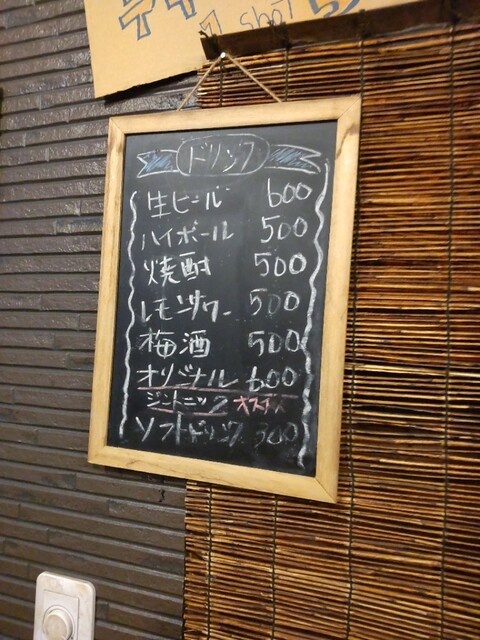 1 shot
ドリンク
生ビール 600
ハイボール 500
焼酎 500
レモンサワー 500
梅酒 500
オリジナル 600
ジントニック オススメ
ソフトドリンク 300